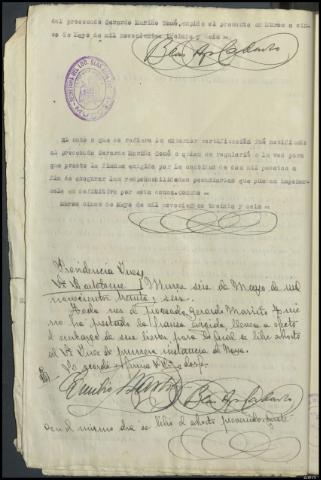 del procesado Gerardo Mariño Tomé, expido el presente en Muros a cin-
co de Mayo de mil novecientos treinta y seis =
El auto a que se refiere la anterior certificación fué notificado
al procesado Gerardo Mariño Tomé a quien se requirió a la vez para
que preste la fianza exigida por la cantidad de dos mil pesetas a
fin de asegurar las responsabilidades pecuniarias que puedan imponer-
sele en definitiva por esta causa.
Muros cinco de Mayo de mil novecientos treinta y seis =
Providencia Juez
Muros seis de Mayo de mil
novecientos treinta y seis.
que el procesado Gerardo Mariño Tomé
no ha prestado la fianza exigida, llevese a efecto
el embargo de sus bienes para lo cual se libre exhorto
al Juez de primera instancia de Noya.
Lo acordó y firma S.S. doy fe.
Emilio
En el mismo dia se libró el exhorto prevenido; doy fe